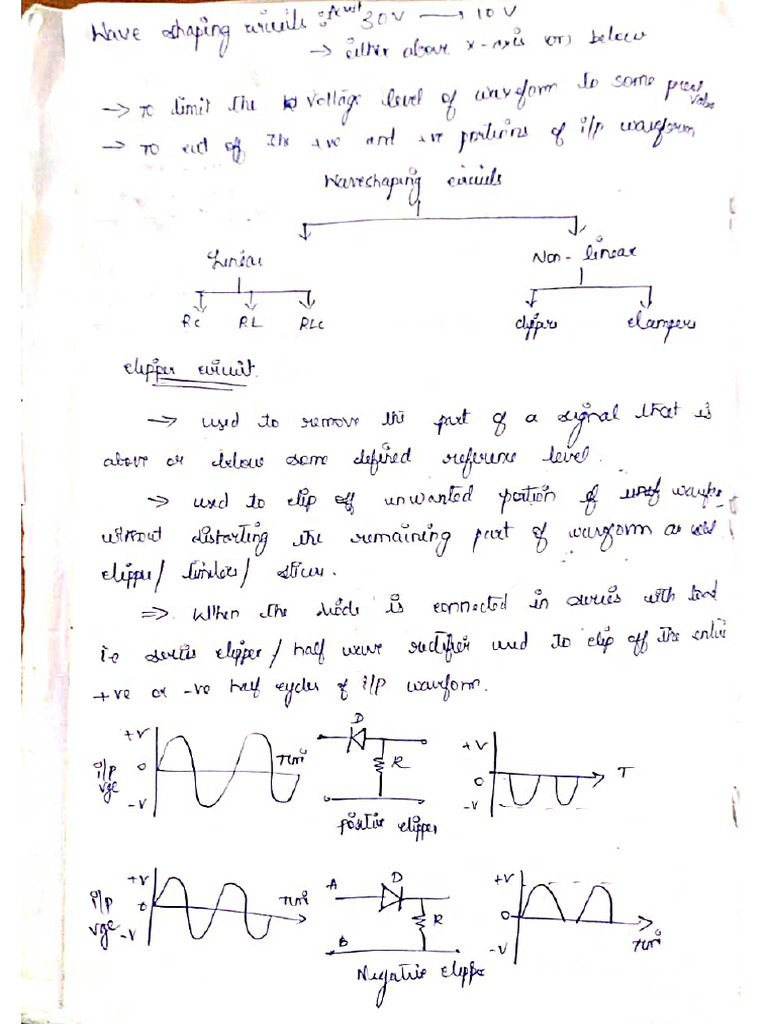 Wave shaping circuits : 30V → 10V
→ either above x-axis (or) below
→ To limit the voltage level of waveform to some preset value
→ To cut of the +ve and +ve portions of i/p waveform
Waveshaping circuits
Linear
Non-linear
RC RL RLC
clippers clampers
clipper circuit.
→ used to remove the part of a signal that is
above or below some defined reference level.
→ used to clip off unwanted portion of
without distorting the remaining part of waveform
clipper/ limiter/ slicer.
⇒ When the diode is connected in series with load
i.e series clipper/ half wave rectifier used to clip off the entire
+ve or -ve half cycles of i/p waveform.
i/p vge +V 0 -V Time
D R
positive clipper
+V 0 -V T
i/p vge +V 0 -V Time
A B D R
Negative clipper
+V 0 -V Time